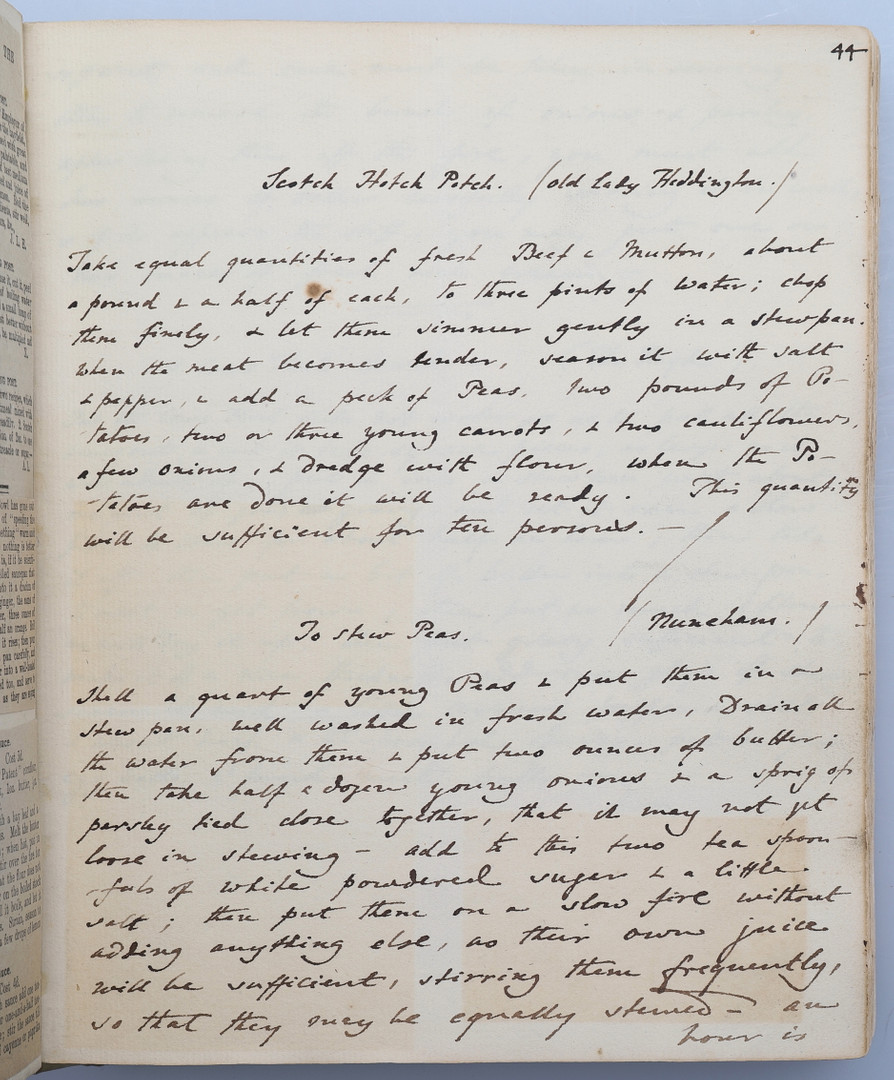 44
Scotch Hotch Potch. (old Lady Heddington.)
Take equal quantities of fresh Beef & Mutton, about
a pound & a half of each, to three pints of water; chop
them finely, & let them simmer gently in a stewpan.
when the meat becomes tender, season it with salt
& pepper, & add a peck of Peas, two pounds of Po-
tatoes, two or three young carrots, & two cauliflowers,
a few onions, & dredge with flour, when the Po-
-tatoes are done it will be ready. This quantity
will be sufficient for ten persons. —
To stew Peas. (Nuneham.)
Shell a quart of young Peas & put them in a
stew pan, well washed in fresh water, Drain all
the water from them & put two ounces of butter;
then take half a dozen young onions & a sprig of
parsley tied close together, that it may not get
loose in stewing – add to this two tea spoon-
-fuls of white powdered sugar & a little
salt; then put them on a slow fire without
adding anything else, as their own juice
will be sufficient, stirring them frequently,
so that they may be equally stewed – an
hour is